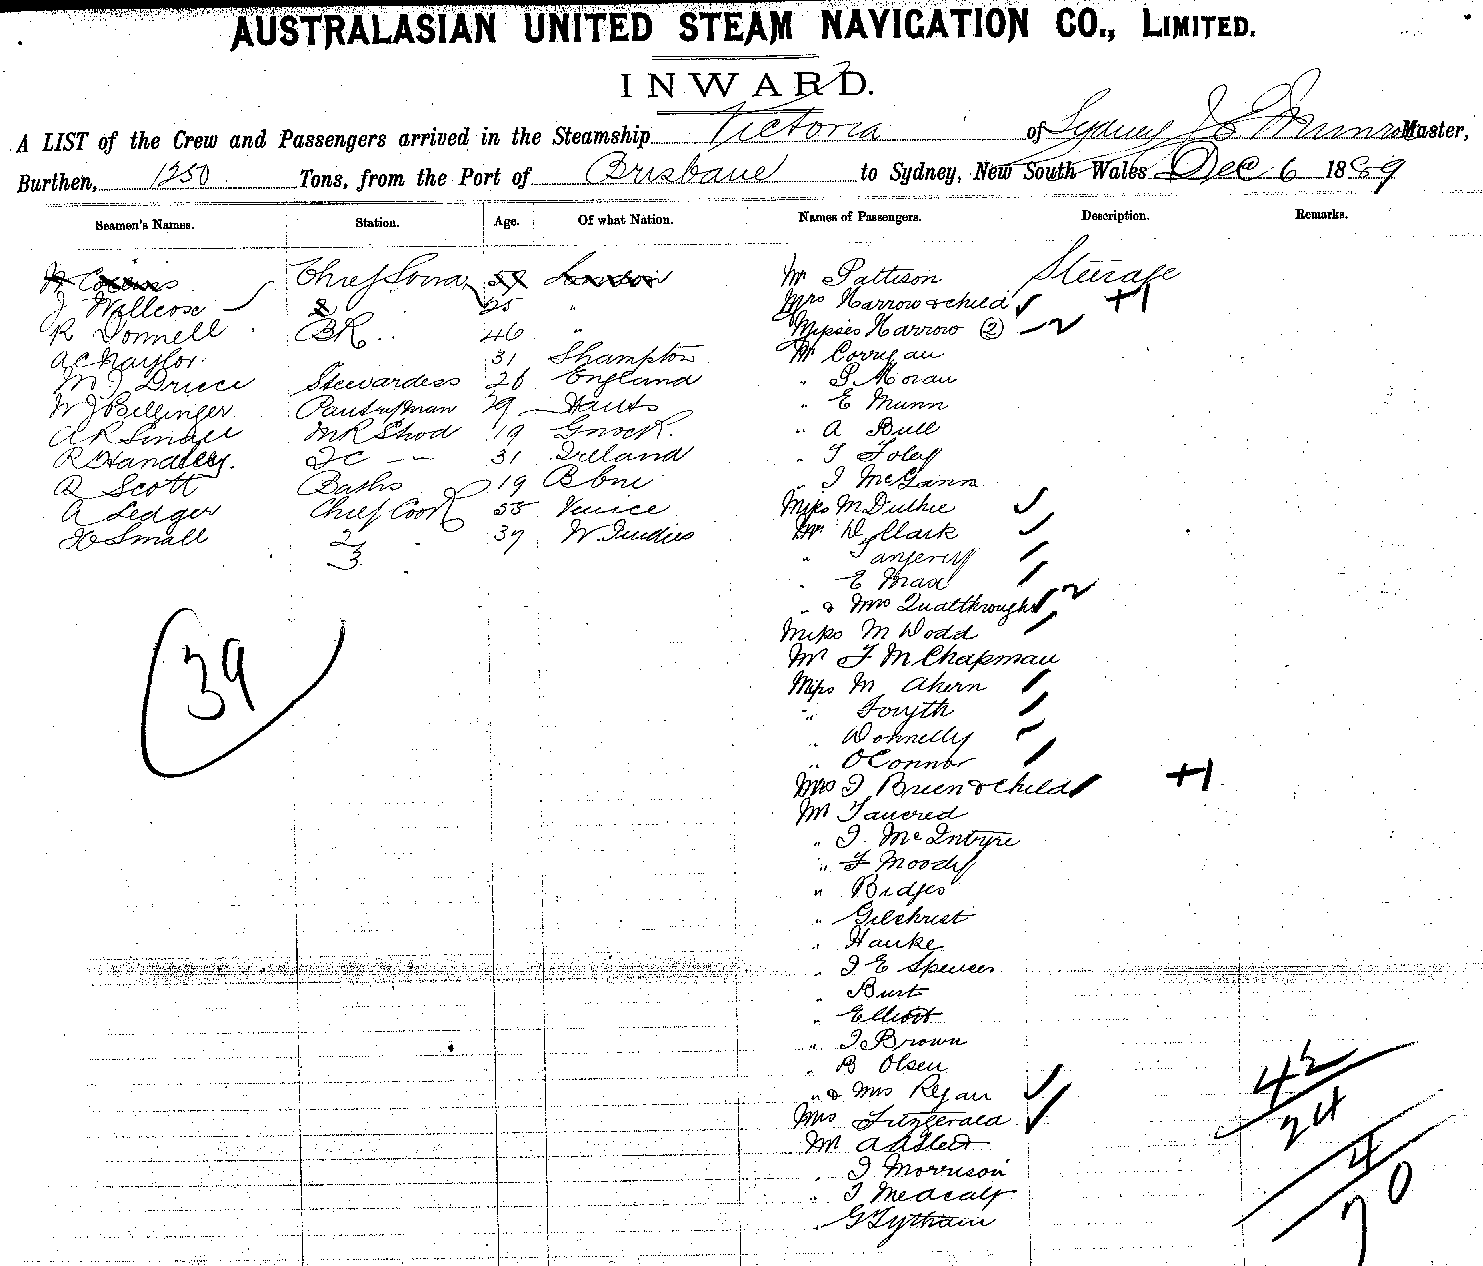 AUSTRALASIAN UNITED STEAM NAVIGATION CO., LIMITED.
INWARD.
A LIST of the Crew and Passengers arrived in the Steamship Victoria of Sydney Master,
Burthen, 1250 Tons, from the Port of Brisbane to Sydney, New South Wales Dec 6 1889
Seamen's Names. Station. Age. Of what Nation. Names of Passengers. Description. Remarks.
Mr Pattison Steerage
J Willcose 25 " Mrs Narrow & child +1
R Donnell BK 46 " Misses Narrow ② 2
AC Naylor 31 Shampton Mr Corrigan
M J Druce Stewardess 26 England " P Moran
WJ Bellinger Pantryman 29 Hants " E Munn
19 Gnock. " A Bull
R Handley. 2C 31 Ireland " T Foley
A Scott Baths 19 Bbne " J McGann
A Ledger Chief Cook 55 Venice Miss M Duthie
H Small 2 39 W Indies Mr D Clark
3 "
" E Max
" & Mrs Qualthrough 2
Miss M Dodd
39
Mr F M Chapman
Miss M Ahern
" Forsyth
" Donnelly
" OConnor
Mrs J Brien & child +1
Mr Tancred
" J. McIntyre
" F Moody
" Bidges
" Gilchrist
" Hanke
" J E Spencer
" Burt
" Elliott
" J Brown
" B Olsen
" & Mrs Regan
42
Mrs Fitzgerald
24
Mr
" J Morrison
4
" J Medcalf
70
" G Lytham